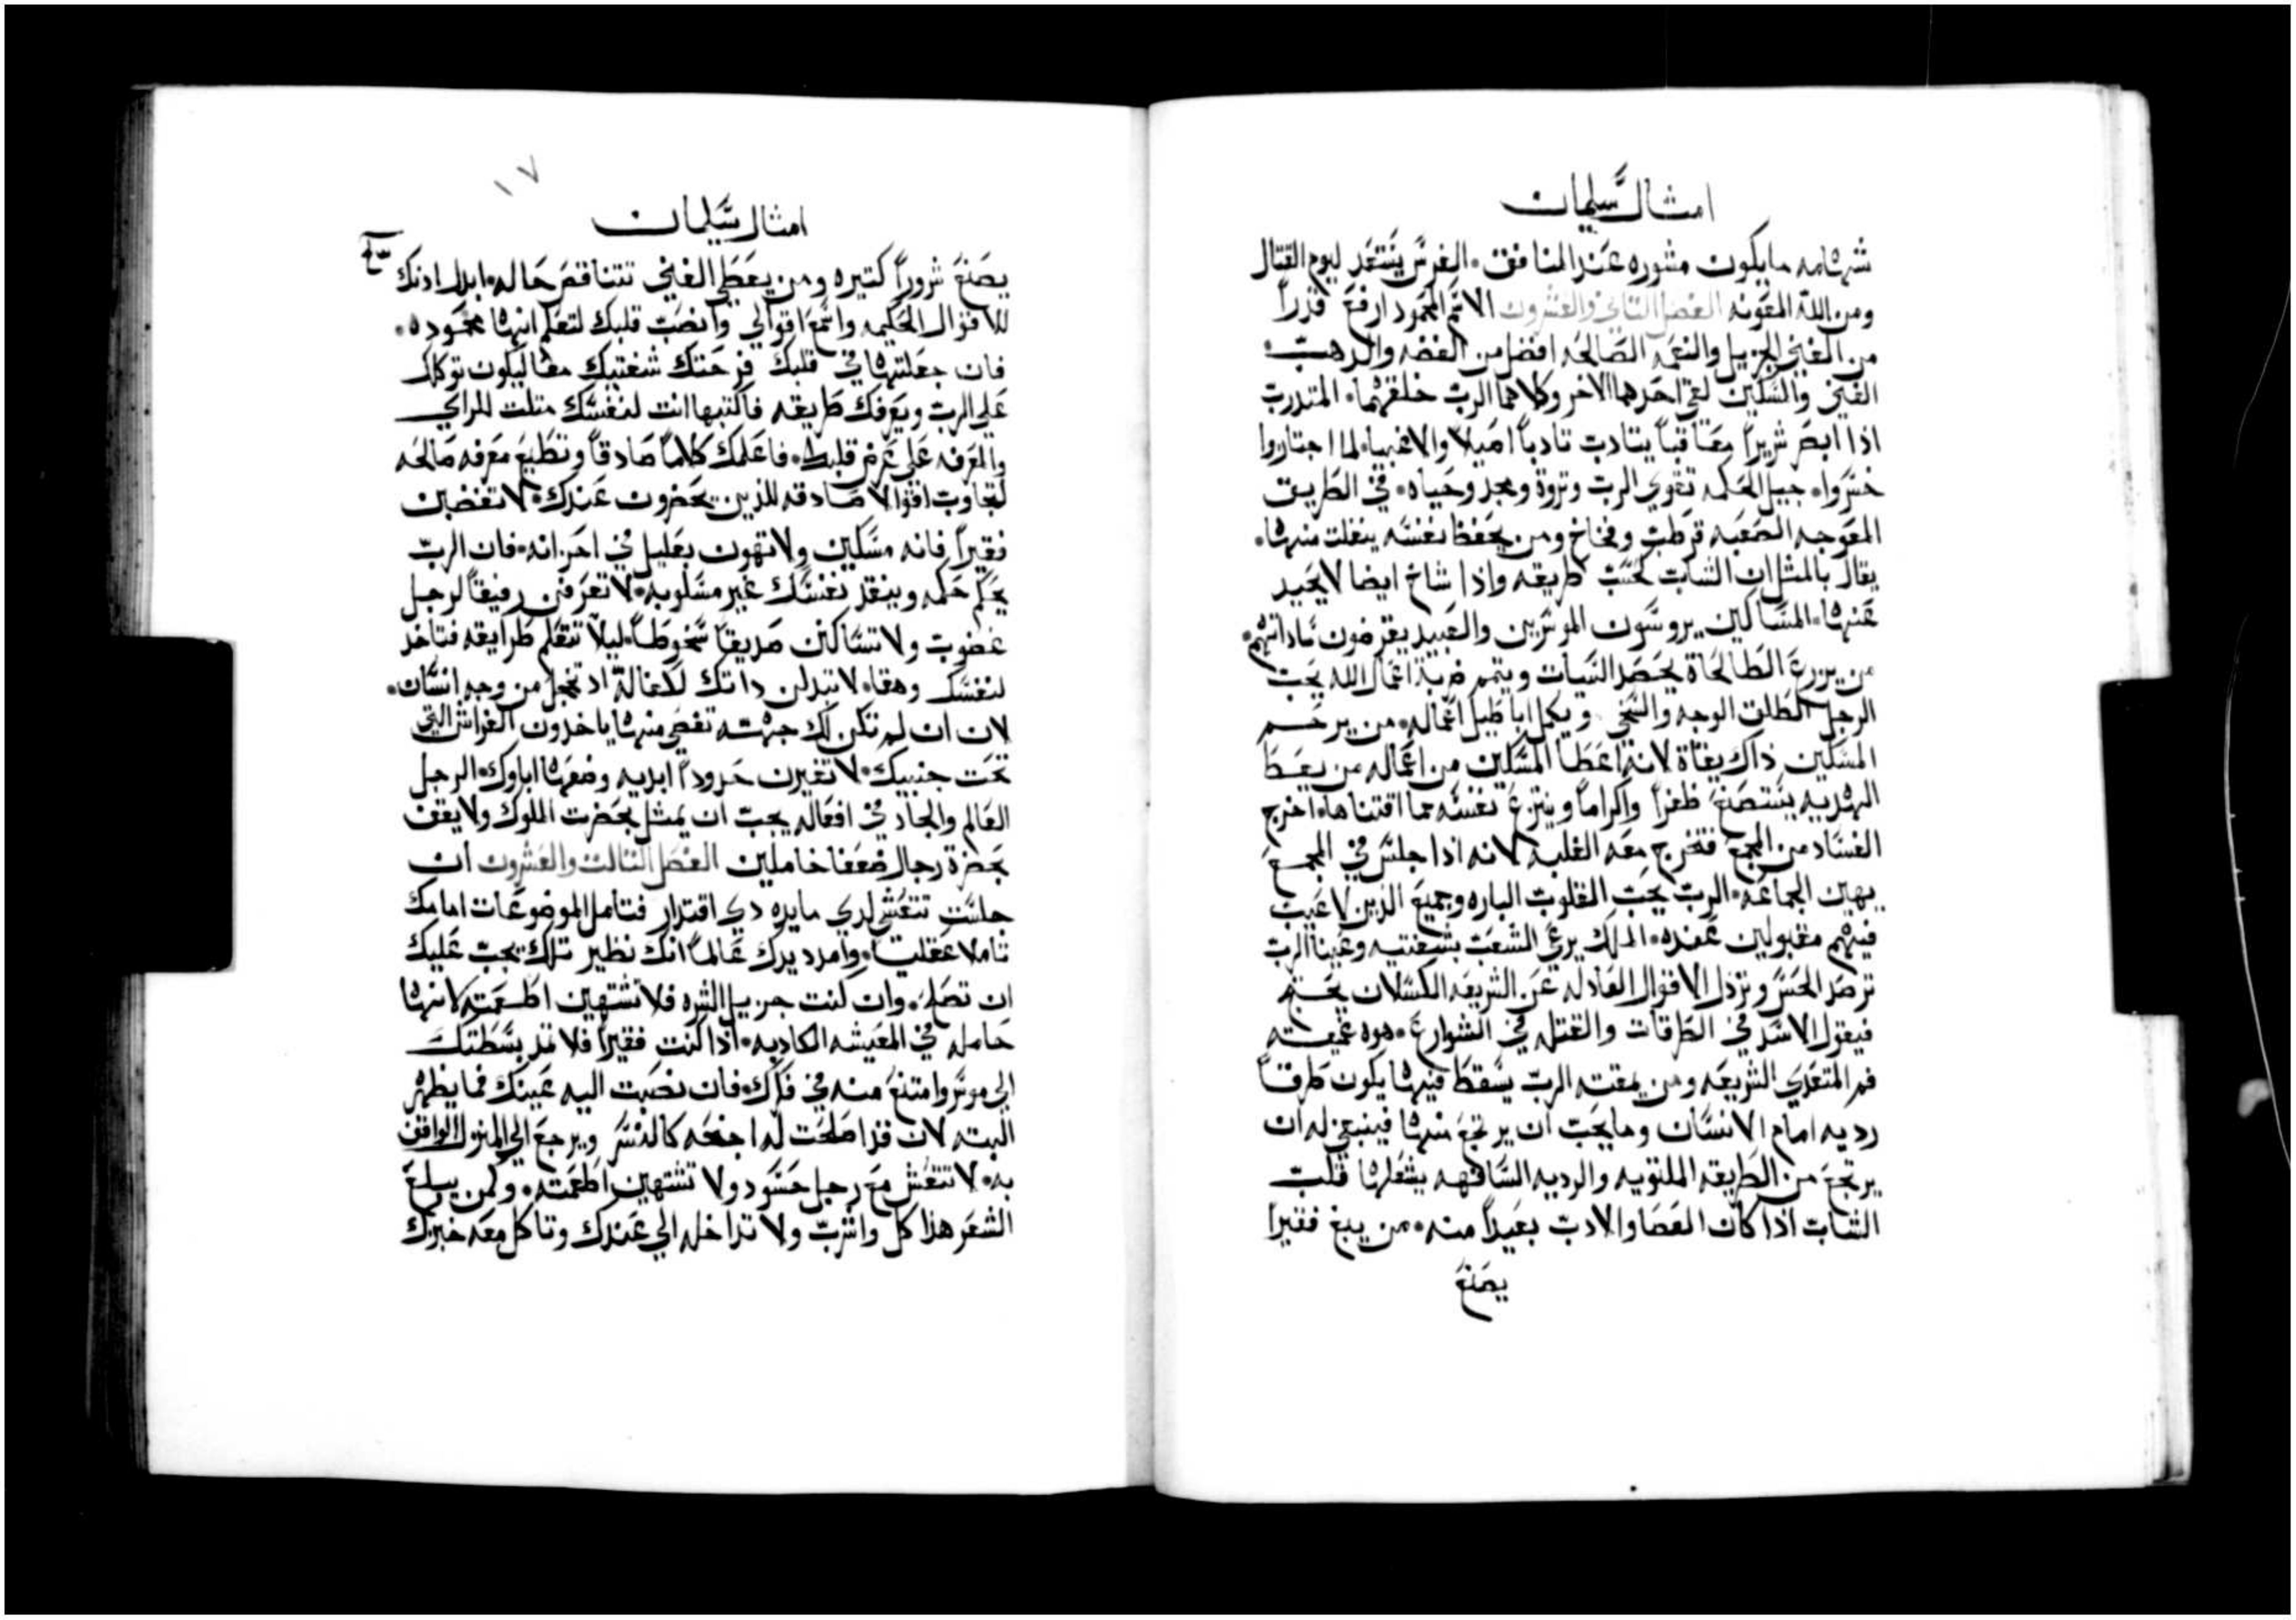 امثال سليمان
شهامه مايكون مشوره عند المنافق • الفرس يستعد ليوم القتال
ومن الله المعونه الفصل الثاني والعشرون الاسم المحمود ارفع قدراً
من الغني الجزيل والنعمه الصالحه افضل من الفضه والدهب •
الغني والمسكين لقي احدهما الاخر وكلاهما الرب خلقهما • المتدرب
اذا ابصر شريراً معاقباً يتادب تادباً اصيلاً والاغبيا لما اجتازوا
خسروا • جيل الحكمه تقوي الرب وثروة ومجد وحياه • في الطريق
المعوجه الصعبه قرطب وفخاخ ومن يحفظ نفسه ينفلت منها •
يقال بالمثل ان الشاب بحسب طريقه واذا شاخ ايضا لا يحيد
عنها • المساكين يروسون الموسرين والعبيد يقرضون ساداتهم •
من يزرع الطالحاة يحصد السيات ويتمم ضربة اعماله الله يحب
الرجل الطلق الوجه والسخي ويكمل اباطيل اعماله • من يرحم
المسكين ذاك يقاة لانه اعطا المسكين من اعماله من يعط
الهديه يستصنع ظفراً واكراماً وينتزع نفسه مما اقتناها • اخرج
الفساد من المجمع فتخرج معه الغلبه لانه اذا جلس في المجمع
يهين الجماعه • الرب يحب القلوب الباره وجميع الذين لا عيب
فيهم مقبولين عنده • الملك يرعي الشعب بشفتيه وعينا الرب
ترصد الحس وترذل الاقوال العادله عن الشريعه الكسلان يحتج
فيقول الاسد في الطرقات والقتله في الشوارع • هوه عميقه
فم المتعدي الشريعه ومن يمقته الرب يسقط فيها يكون طرقاً
رديه امام الانسان وما يحب ان يرتجع منها فينبغي له ان
يرتجع من الطريقه الملتويه والرديه السافهه يشعلها قلب
الشاب اذا كان العصا والادب بعيداً منه • من يبغ فقيراً
يصنع
١٧
امثال سليمان
يصنع شروراً كتيره ومن يعطي الغني تتناقص حاله • ابدل ادنك
للاقوال الحكيمه واسمع اقوالي وانصب قلبك لتعلم انها محموده •
فان جعلتها في قلبك فرحتك شفتيك معا ليكون توكلك
علي الرب ويعرفك طريقه فاكتبها انت لنفسك مثلت للراي
والمعرفه علي عرض قلبك • فاعلمك كلاماً صادقاً وتطيع معرفه صالحه
لتجاوب اقوالا صادقه للذين يحضرون عندك • لا تغضبن
فقيراً فانه مسكين ولا تهون بعليل في احزانه • فان الرب
يحكم حكمه وينقذ نفسك غير مسلوبه • لا تعرفن رفيقاً لرجل
غضوب ولا تساكن صديقاً سخوطاً • ليلا تتعلم طرايقه فتاخد
لنفسك وهقا • لا تبدلن داتك لكفالة اد تخجل من وجه انسان •
لان ان لم تكن لك جهته تقضي منها ياخدون الفراش التي
تحت جنبيك • لا تغيرن حدوداً ابديه وضعها اباوك • الرجل
العالم والجاد في افعاله يجب ان يمثل بحضرت الملوك ولا يقف
بحضرة رجال ضعفا خاملين الفصل الثالث والعشرون ان
جلست تتعشي لدي مايده دي اقتدار فتامل الموضوعات امامك
تاملا عقليا • وامدد يدك عالماً انك نظير تلك يجب عليك
ان تصلح • وان كنت جزيل الشره فلا تشتهين اطعمته لانها
حامله في المعيشه الكادبه • اذا كنت فقيراً فلا تمد بسطتك
الي موسر وامتنع منه في فكرك • فان نصبت اليه عينك فما يظهر
البته لان قد اصلحت له اجنحه كالنسر ويرجع الي المنزل الواقف
به • لا تتعش مع رجل حسود ولا تشتهين اطعمته • وكمن يبلع
الشعر هذا كل واشرب ولا تداخله الي عندك وتاكل معه خبزك